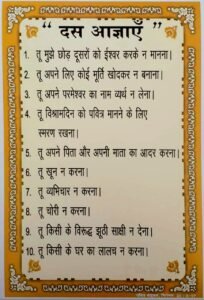 “ दस आज्ञाएँ ”
1. तू मुझे छोड़ दूसरों को ईश्वर करके न मानना।
2. तू अपने लिए कोई मूर्ति खोदकर न बनाना।
3. तू अपने परमेश्वर का नाम व्यर्थ न लेना।
4. तू विश्रामदिन को पवित्र मानने के लिए
स्मरण रखना।
5. तू अपने पिता और अपनी माता का आदर करना।
6. तू खून न करना।
7. तू व्यभिचार न करना।
8. तू चोरी न करना।
9. तू किसी के विरूद्ध झूठी साक्षी न देना।
10. तू किसी के घर का लालच न करना।